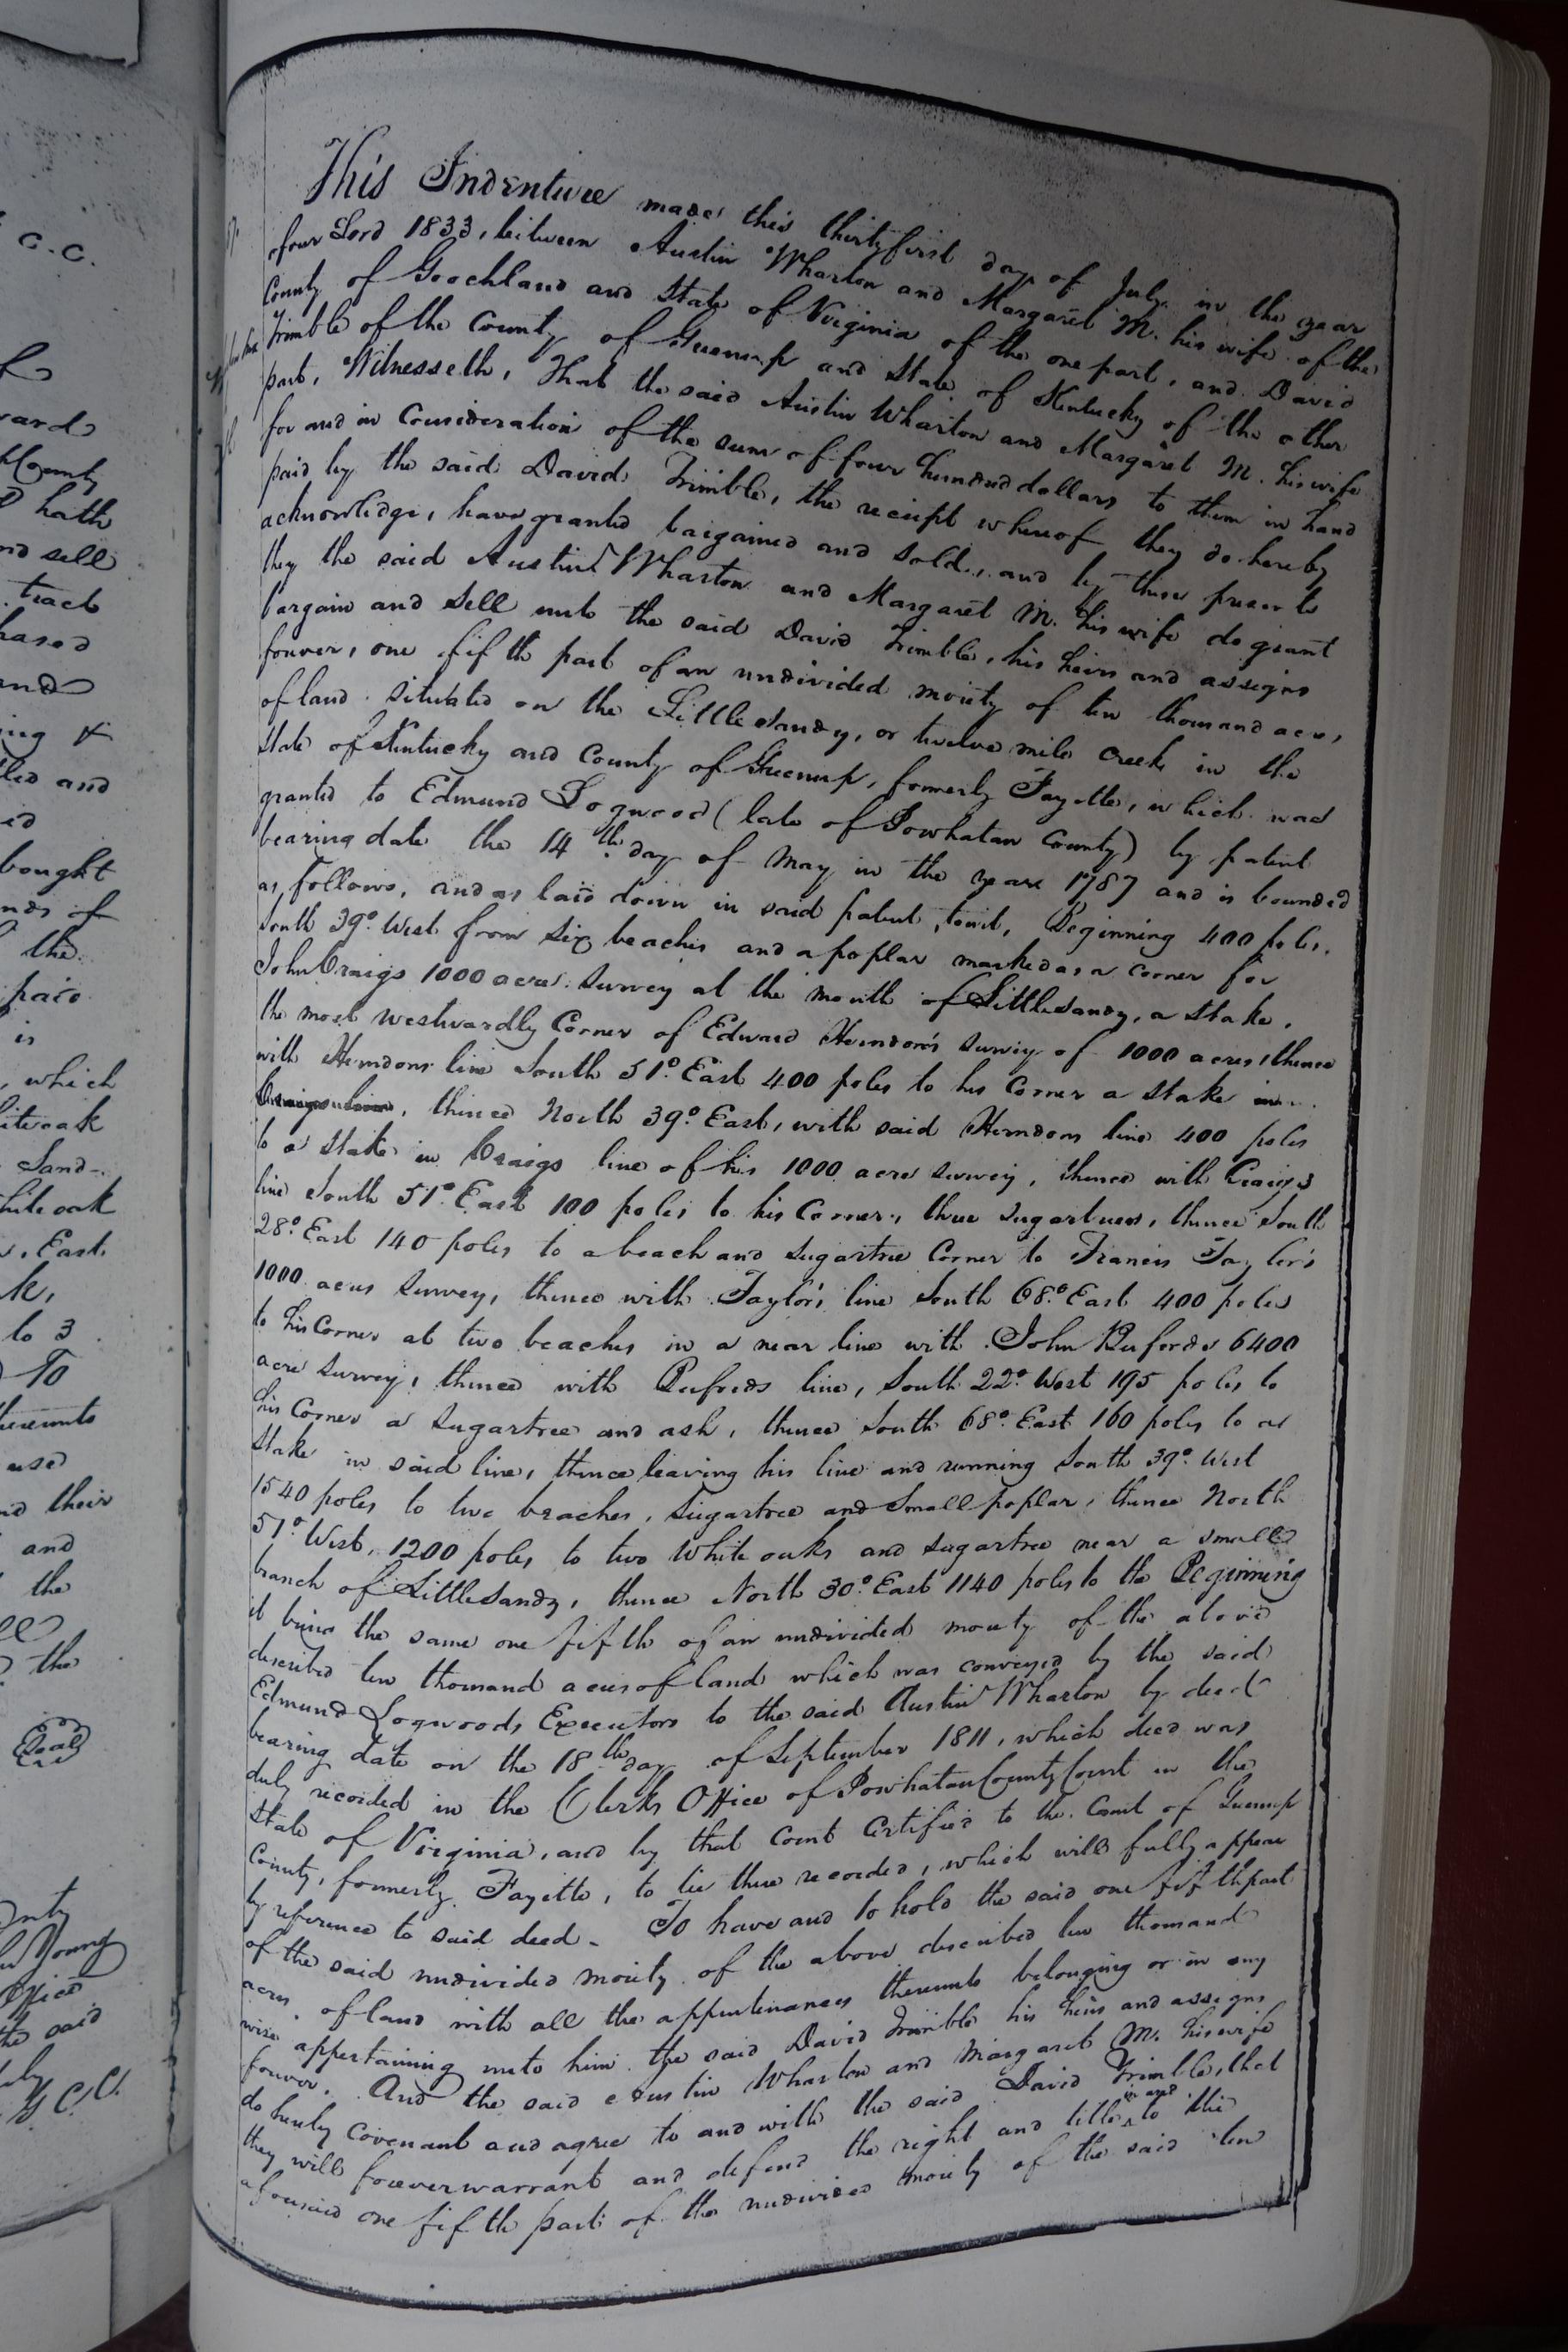 C. C.
ard
County
hath
nd sell
tract
hased
and
ing &
led and
ed
bought
nds of
the
paid
is
, which
hiteoak
Sand-
hite oak
East
to 3
To
hereunto
used
nd their
and
the
the
Seal
Young
Office
the said
This Indenture made this thirtyfirst day of July in the year
of our Lord 1833, between Austin Wharton and Margaret M. his wife of the
County of Goochland and State of Virginia of the one part, and David
Trimble of the County of Greenup and State of Kentucky of the other
part, Witnesseth, That the said Austin Wharton and Margaret M. his wife
for and in Consideration of the sum of four hundred dollars to them in hand
paid by the said David Trimble, the receipt whereof they do hereby
acknowledge, have granted bargained and sold, and by these presents
they the said Austin Wharton and Margaret M. his wife do grant
bargain and sell unto the said David Trimble, his heirs and assigns
forever, one fifth part of an undivided moiety of ten thousand acres,
of land situated on the Little Sandy, or twelve mile creek in the
State of Kentucky and County of Greenup, formerly Fayette, which was
granted to Edmund Logwood (late of Powhatan County) by patent
bearing date the 14th day of May in the year 1787 and is bounded
as follows, and as laid down in said patent, towit, Beginning 400 poles.
South 39° West from Six beaches and a poplar marked as a corner for
John Craigs 1000 acre survey at the mouth of Little Sandy, a Stake,
the most westwardly Corner of Edward Herndon's survey of 1000 acres, thence
with Herndons line South 51° East 400 poles to his Corner a Stake in
Craigs line, thence North 39° East, with said Herndons line 400 poles
to a Stake in Craigs line of his 1000 acre survey, thence with Craigs
line South 51° East 100 poles to his Corner, three sugartrees, thence South
28° East 140 poles to a beach and sugartree Corner to Francis Taylor's
1000 acres survey, thence with Taylor's line South 68° East 400 poles
to his Corner at two beaches in a near line with John Bufords 6400
acre survey, thence with Bufords line, South 22° West 195 poles to
his Corner a sugartree and ash, thence South 68° East 160 poles to a
Stake in said line, thence leaving his line and running South 39° West
1540 poles to two beaches, Sugartree and Small poplar, thence North
51° West, 1200 poles to two White oaks and sugartree near a small
branch of Little Sandy, thence North 30° East 1140 poles to the Beginning
it being the same one fifth of an undivided moiety of the above
described ten thousand acres of land which was conveyed by the said
Edmund Logwoods Executors to the said Austin Wharton by deed
bearing date on the 18th day of September 1811, which deed was
duly recorded in the Clerks Office of Powhatan County Court in the
State of Virginia, and by that Court Certified to the Court of Greenup
County, formerly Fayette, to be there recorded, which will fully appear
by reference to said deed - To have and to hold the said one fifth part
of the said undivided moiety of the above described ten thousand
acres, of land with all the appurtenances thereunto belonging or in any
wise appertaining unto him the said David Trimble his heirs and assigns
forever. And the said Austin Wharton and Margaret M. his wife
do hereby Covenant and agree to and with the said David Trimble, that
they will forever warrant and defend the right and title in and to the
aforesaid one fifth part of the undivided moiety of the said ten